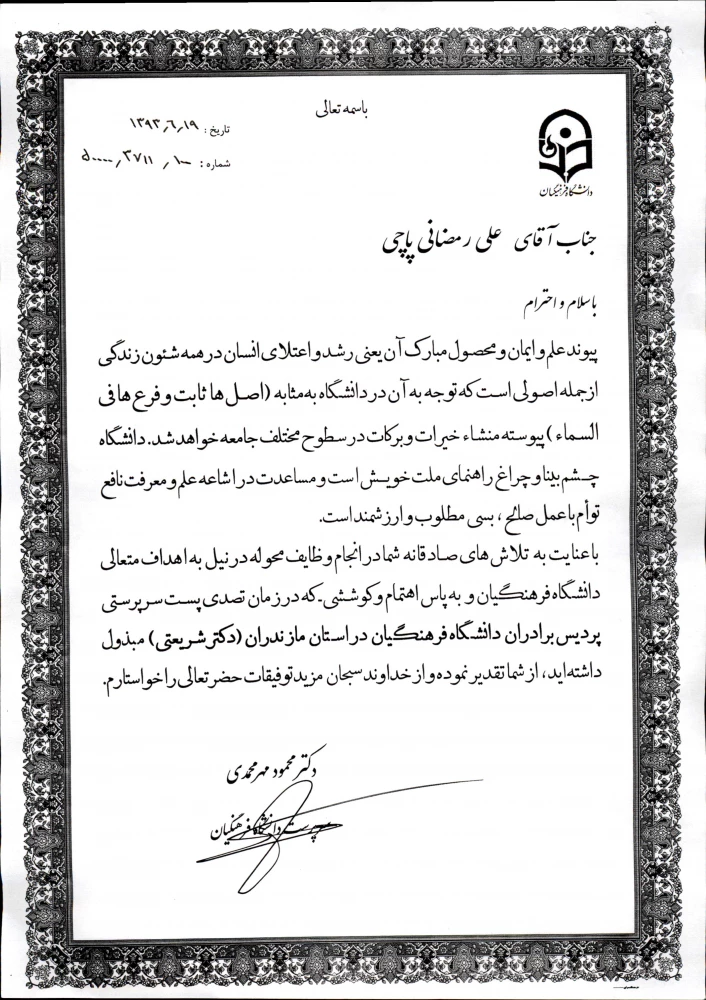 باسمه تعالی
تاریخ : ۱۳۹۳٫۶٫۱۹
شماره : ۵۰۰۰۰٫۳۷۱۱٫۱۰۰
دانشگاه فرهنگیان
جناب آقای علی رمضانی پاچی
با سلام و احترام
پیوند علم و ایمان و محصول مبارک آن یعنی رشد و اعتلای انسان در همه شئون زندگی
از جمله اصولی است که توجه به آن در دانشگاه به مثابه (اصل ها ثابت و فرع ها فی
السماء) پیوسته منشاء خیرات و برکات در سطوح مختلف جامعه خواهد شد. دانشگاه
چشم بینا و چراغ راهنمای ملت خویش است و مساعدت در اشاعه علم و معرفت نافع
توأم با عمل صالح ، بسی مطلوب و ارزشمند است.
با عنایت به تلاش های صادقانه شما در انجام وظایف محوله در نیل به اهداف متعالی
دانشگاه فرهنگیان و به پاس اهتمام و کوششی که در زمان تصدی پست سرپرستی
پردیس برادران دانشگاه فرهنگیان در استان مازندران (دکتر شریعتی) مبذول
داشته اید، از شما تقدیر نموده و از خداوند سبحان مزید توفیقات حضرتعالی را خواستارم.
دکتر محمود مهرمحمدی
سرپرست دانشگاه فرهنگیان